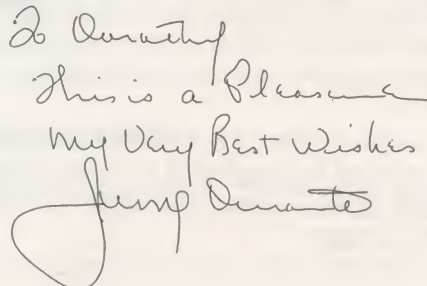 To Dorothy
This is a Pleasure
My Very Best Wishes
Jimmy Durante